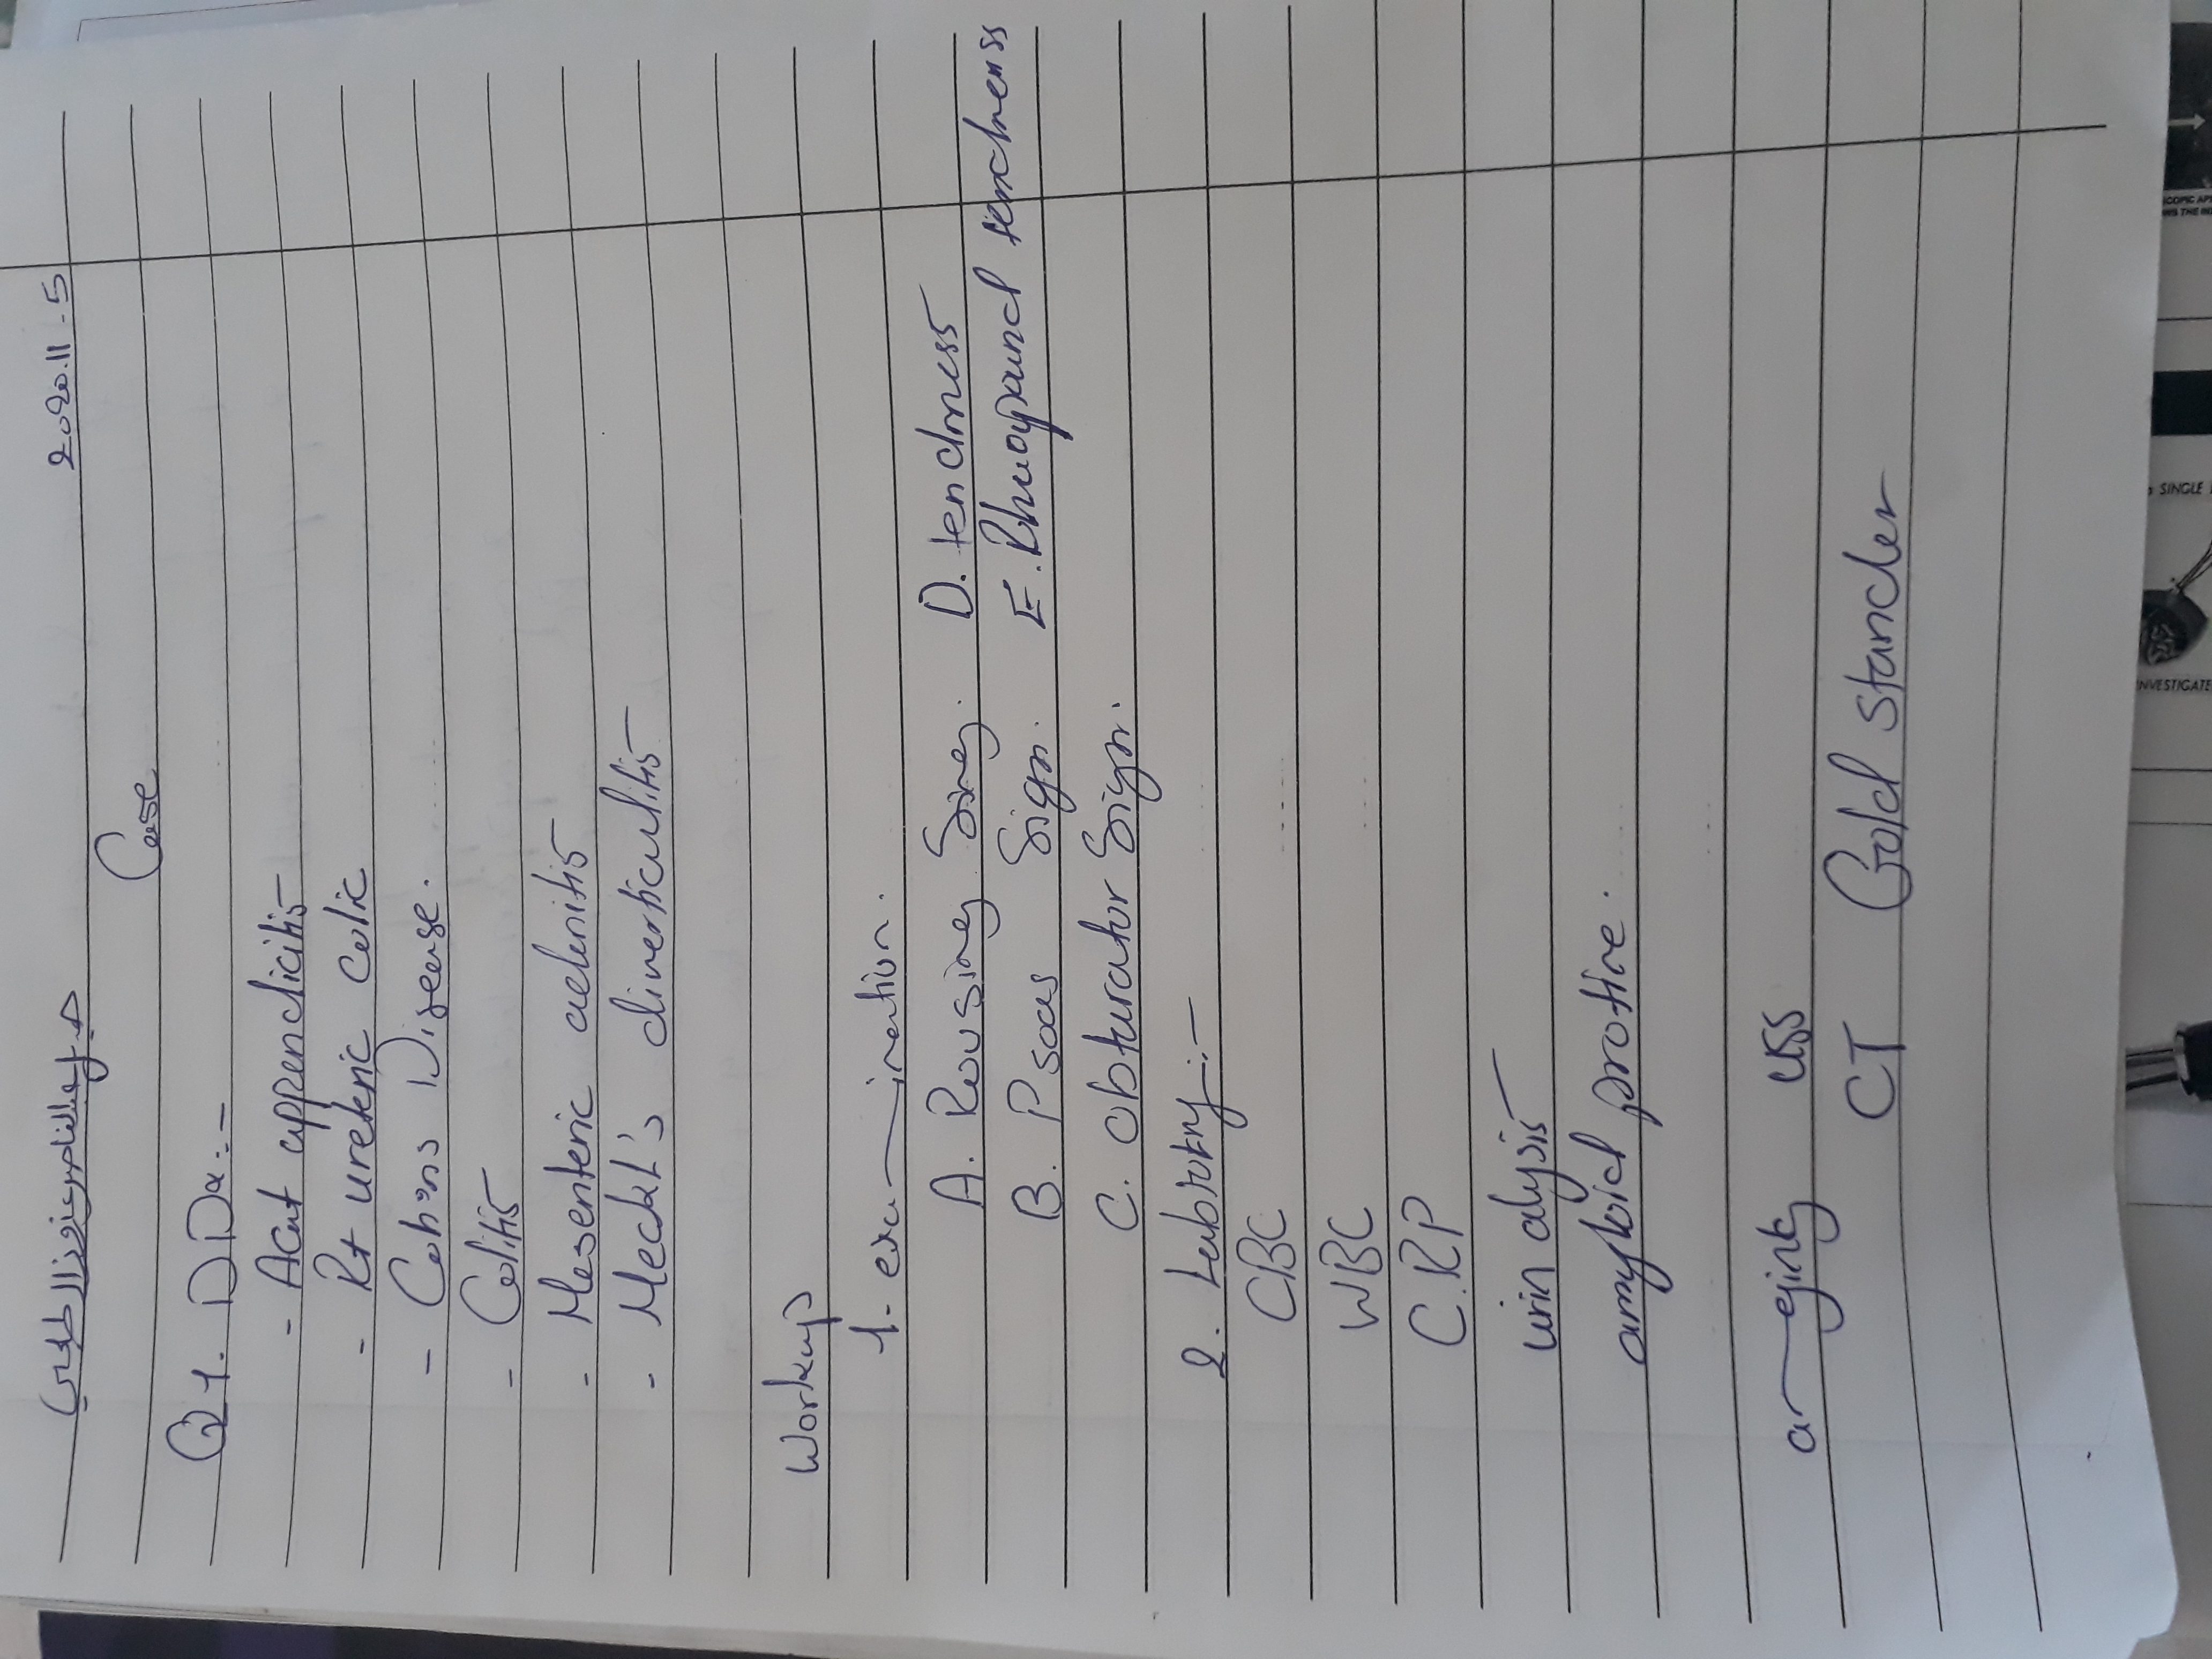 2020.11.5
Case
Q1. DDx:-
- Acut appendicitis
- Rt ureteric colic
- Cohns Disease.
- Colitis
- Mesenteric adenitis
- Meckl's diverticulitis
Workup
1- examination.
A. Rovsing Sineg. D. tendrness
B. Psoas Sign. E. tendrnenss
C. obturator Sign.
2. Labrotry:-
CBC
WBC
C.RP
urin alysis
amyloid protine.
USS
CT Gold stander
SINGLE
INVESTIGATE